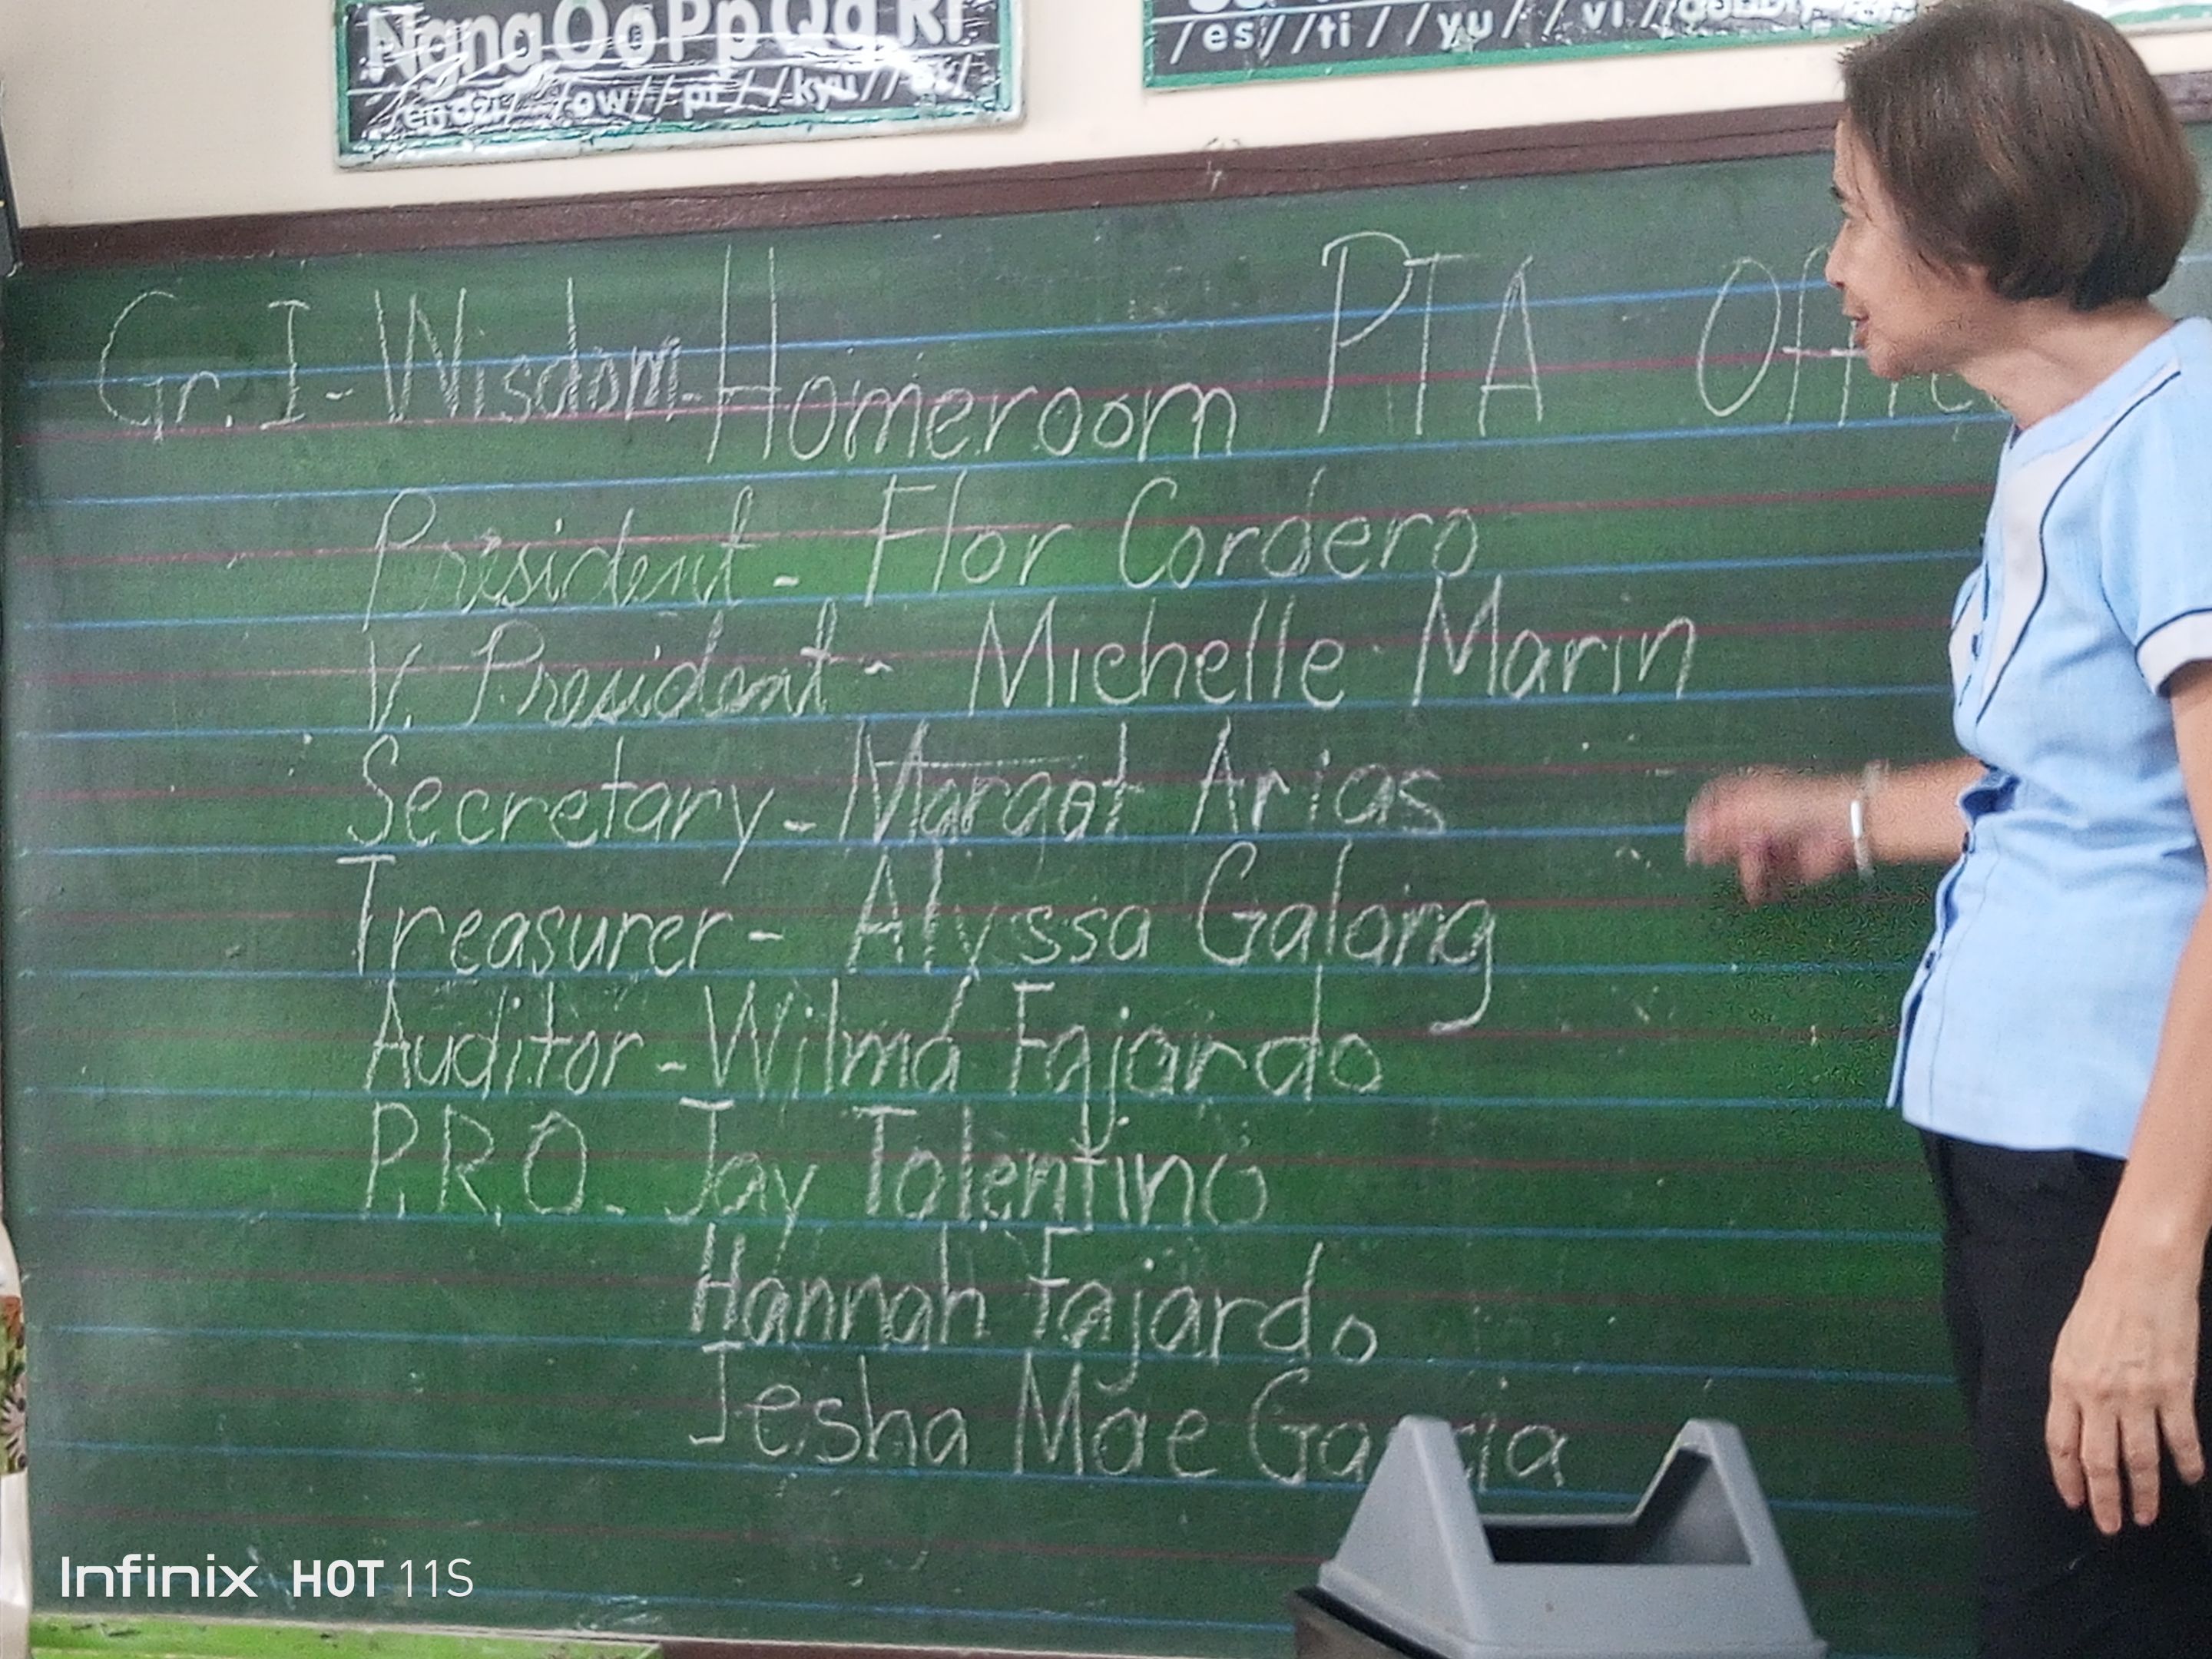 NgngOoPpQqRr
/es/ /ti/ /yu/ /vi/
/ow/ /pi/ /kyu/
Gr. I - Wisdom - Homeroom PTA
President - Flor Cordero
V. President - Michelle Marin
Secretary - Margot Arias
Treasurer - Alyssa Galang
Auditor - Wilma Fajardo
P.R.O. - Jay Tolentino
Hannah Fajardo
Jesha Mae
Infinix HOT 11S